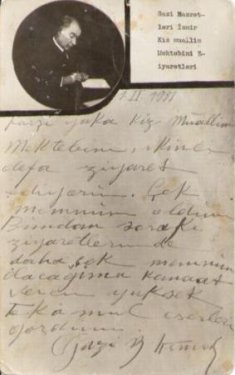 Gazi Hazret-
leri İzmir
Kız muallim
Mektebini Zi-
yaretleri
1 II 1931
Karşı yaka Kız Muallim
Mektebini, ikinci
defa ziyaret
ediyorum. Çok
memnun oldum
Bundan sonraki
ziyaretlerimde
daha çok memnun
olacağıma kanaat
veren yüksek
tekâmül eserleri
gördüm
Gazi M Kemal